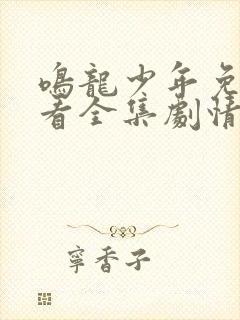 鳴龍少年免
看全集劇情
寧香子